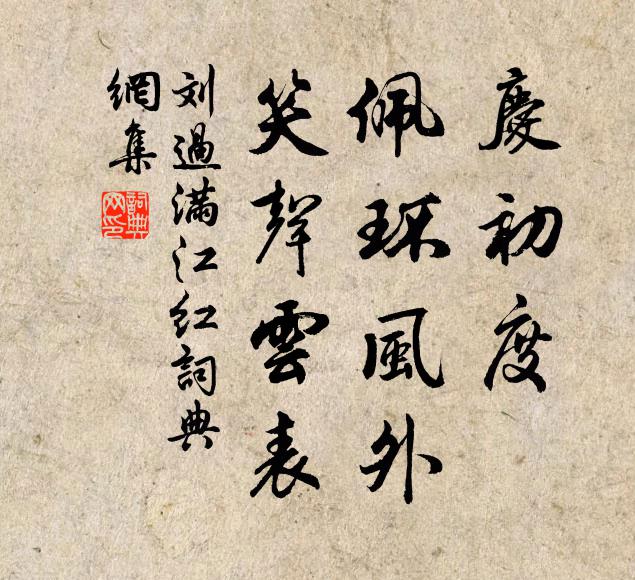 慶初度
佩环風外
笑聲雲表
刘過满江红詞典
網集
詞典
网印